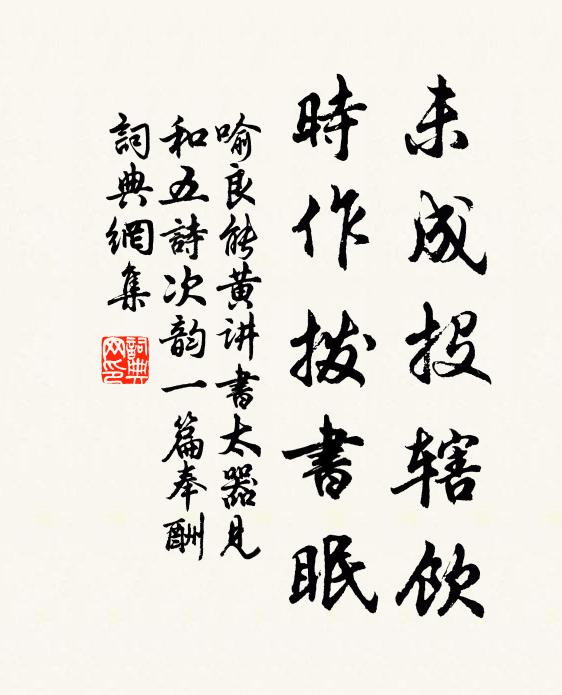 未成投辖飲
時作拨書眠
喻良能黄讲書太器見
和五詩次韵一篇奉酬
詞典網集
詞典网印